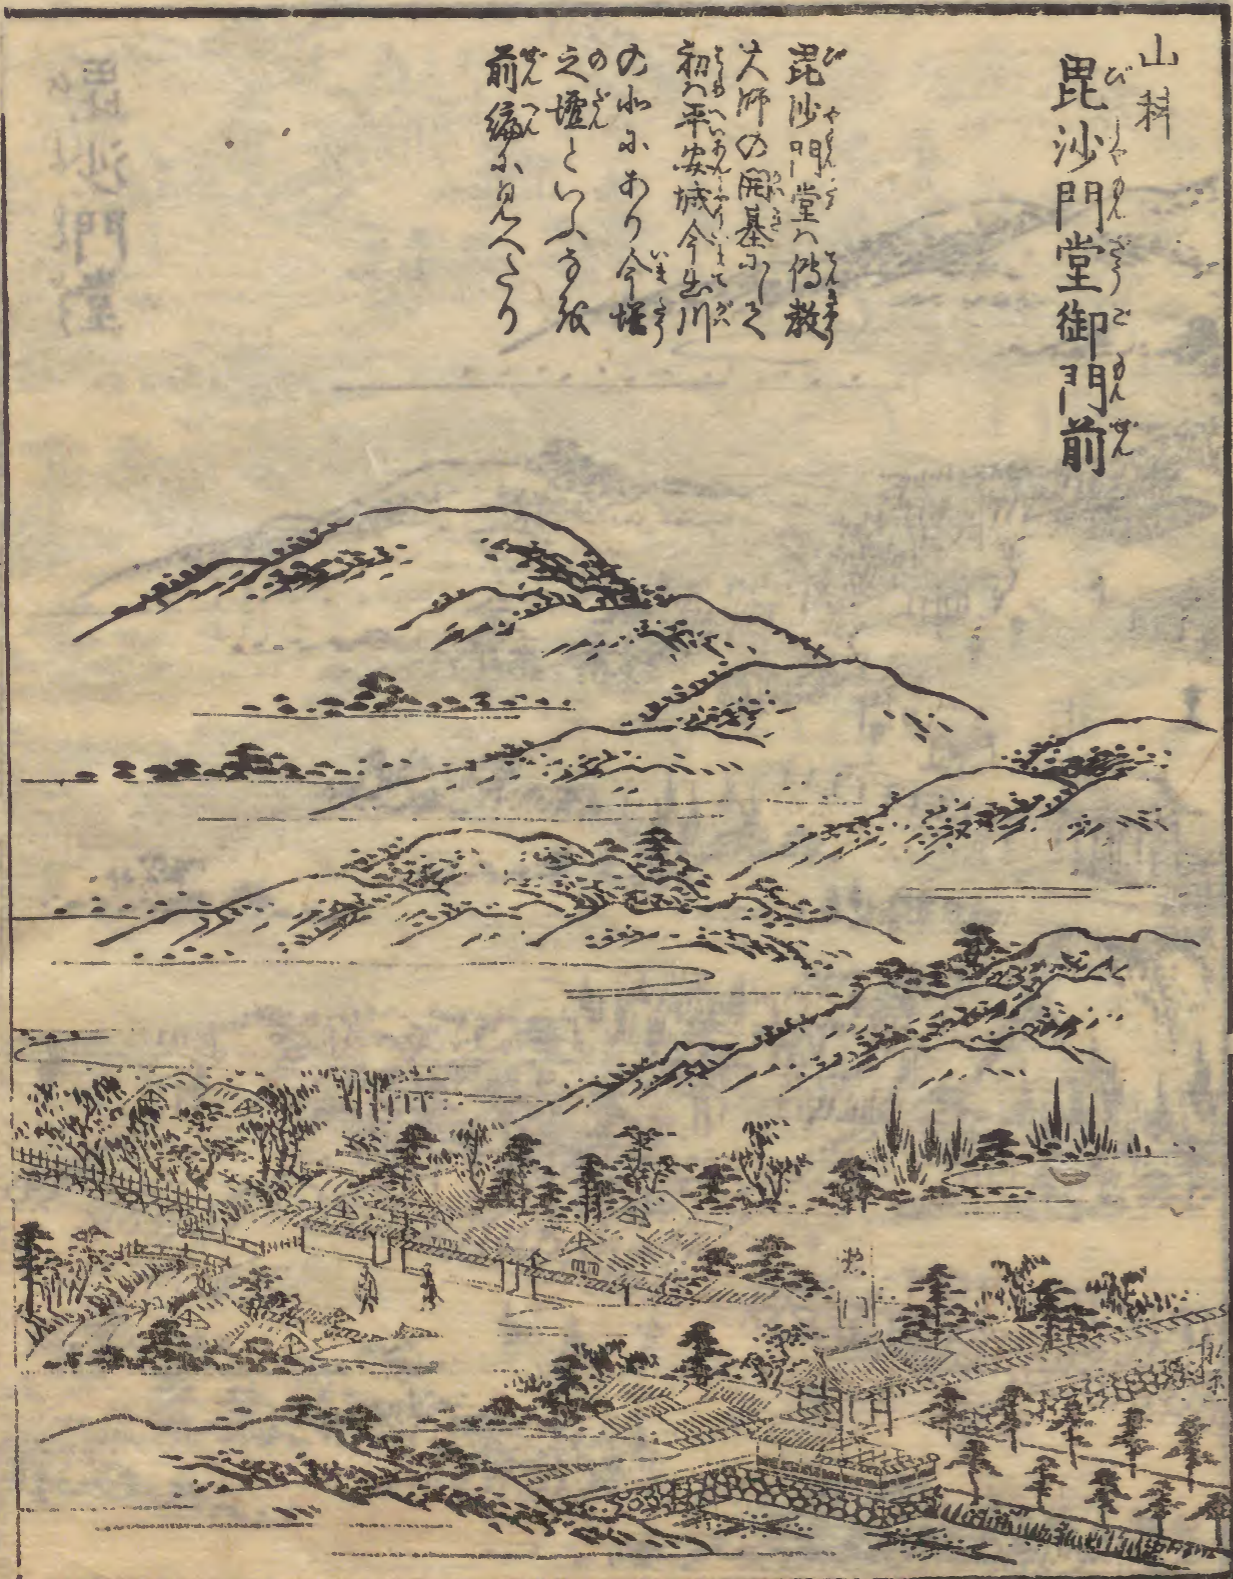 山科
毘沙門堂御門前
毘沙門堂ハ傳教
大師の開基にして
初ハ平安城今出川
の北にあり今堂
之壇といふなほ
前編に見へたり